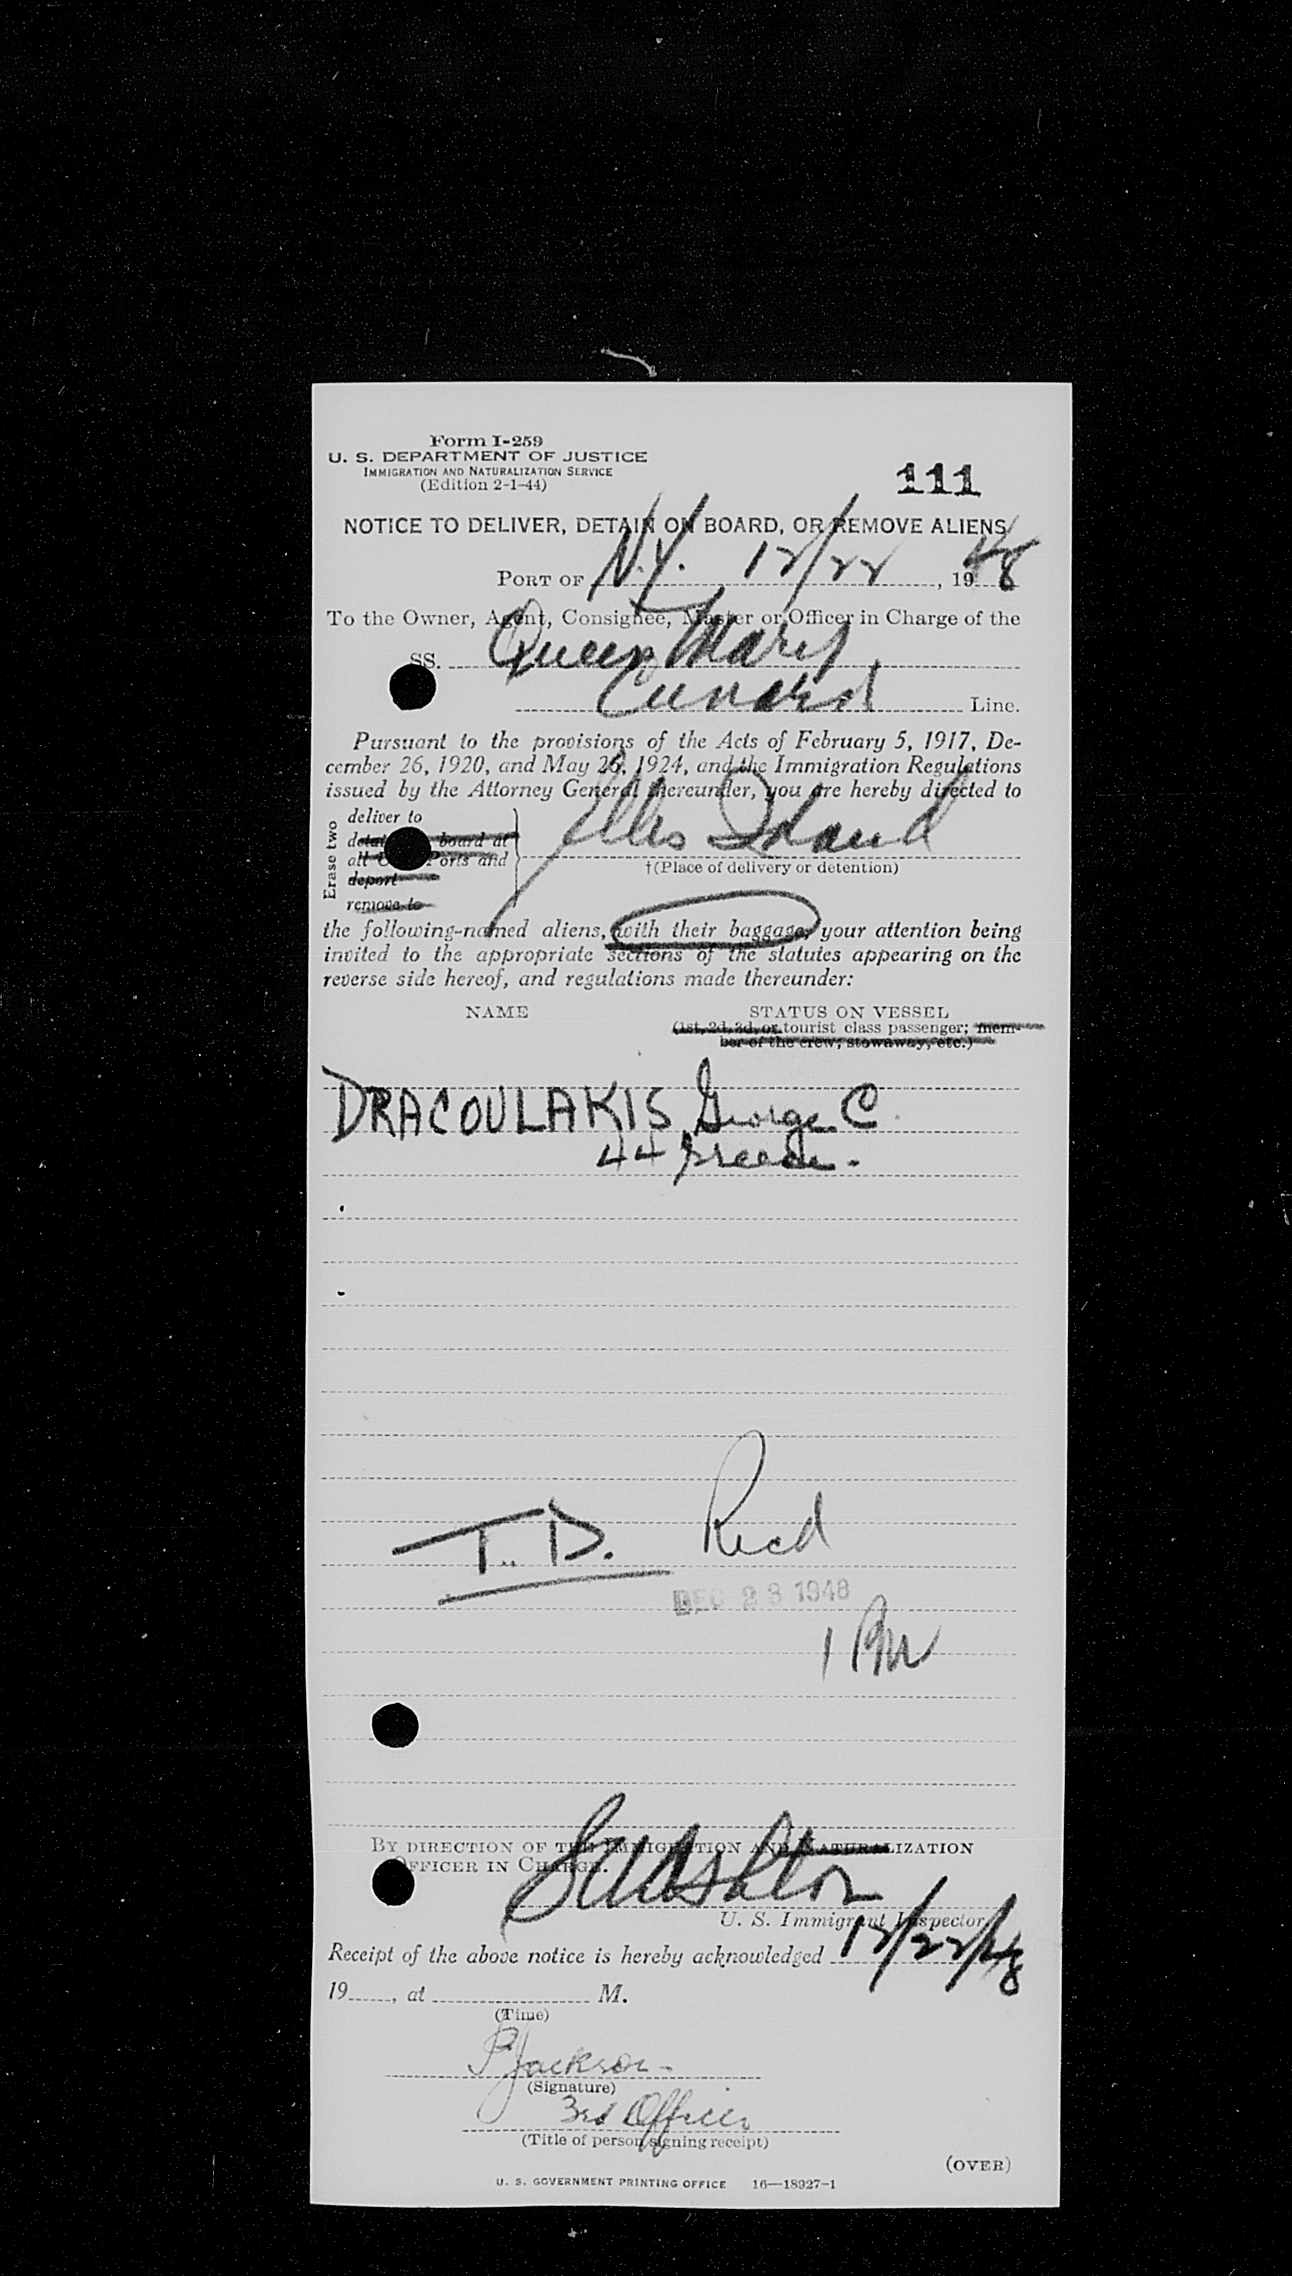 Form I-259
U. S. DEPARTMENT OF JUSTICE
IMMIGRATION AND NATURALIZATION SERVICE
(Edition 2-1-44)
111
NOTICE TO DELIVER, DETAIN ON BOARD, OR REMOVE ALIENS
PORT OF N.Y. 12/22, 1948
To the Owner, Agent, Consignee, Master or Officer in Charge of the
SS. Queen Mary
Cunard Line.
Pursuant to the provisions of the Acts of February 5, 1917, De-
cember 26, 1920, and May 26, 1924, and the Immigration Regulations
issued by the Attorney General thereunder, you are hereby directed to
Erase two
deliver to
detai board at
all U Ports and
deport
remove to
Ellis Island
†(Place of delivery or detention)
the following-named aliens, with their baggage, your attention being
invited to the appropriate sections of the statutes appearing on the
reverse side hereof, and regulations made thereunder:
NAME STATUS ON VESSEL
(1st, 2d, 3d, or tourist class passenger; mem-
ber of the crew; stowaway, etc.)
DRACOULAKIS, George C.
44 Greece.
T.D. Recd
DEC 23 1948
1 PM
BY DIRECTION OF THE IMMIGRATION AND NATURALIZATION
OFFICER IN CHARGE.
U. S. Immigrant Inspector
Receipt of the above notice is hereby acknowledged 12/22/48
19____, at ____ M.
(Time)
P Jackson
(Signature)
3rd Officer
(Title of person signing receipt)
(OVER)
U. S. GOVERNMENT PRINTING OFFICE 16—18927-1